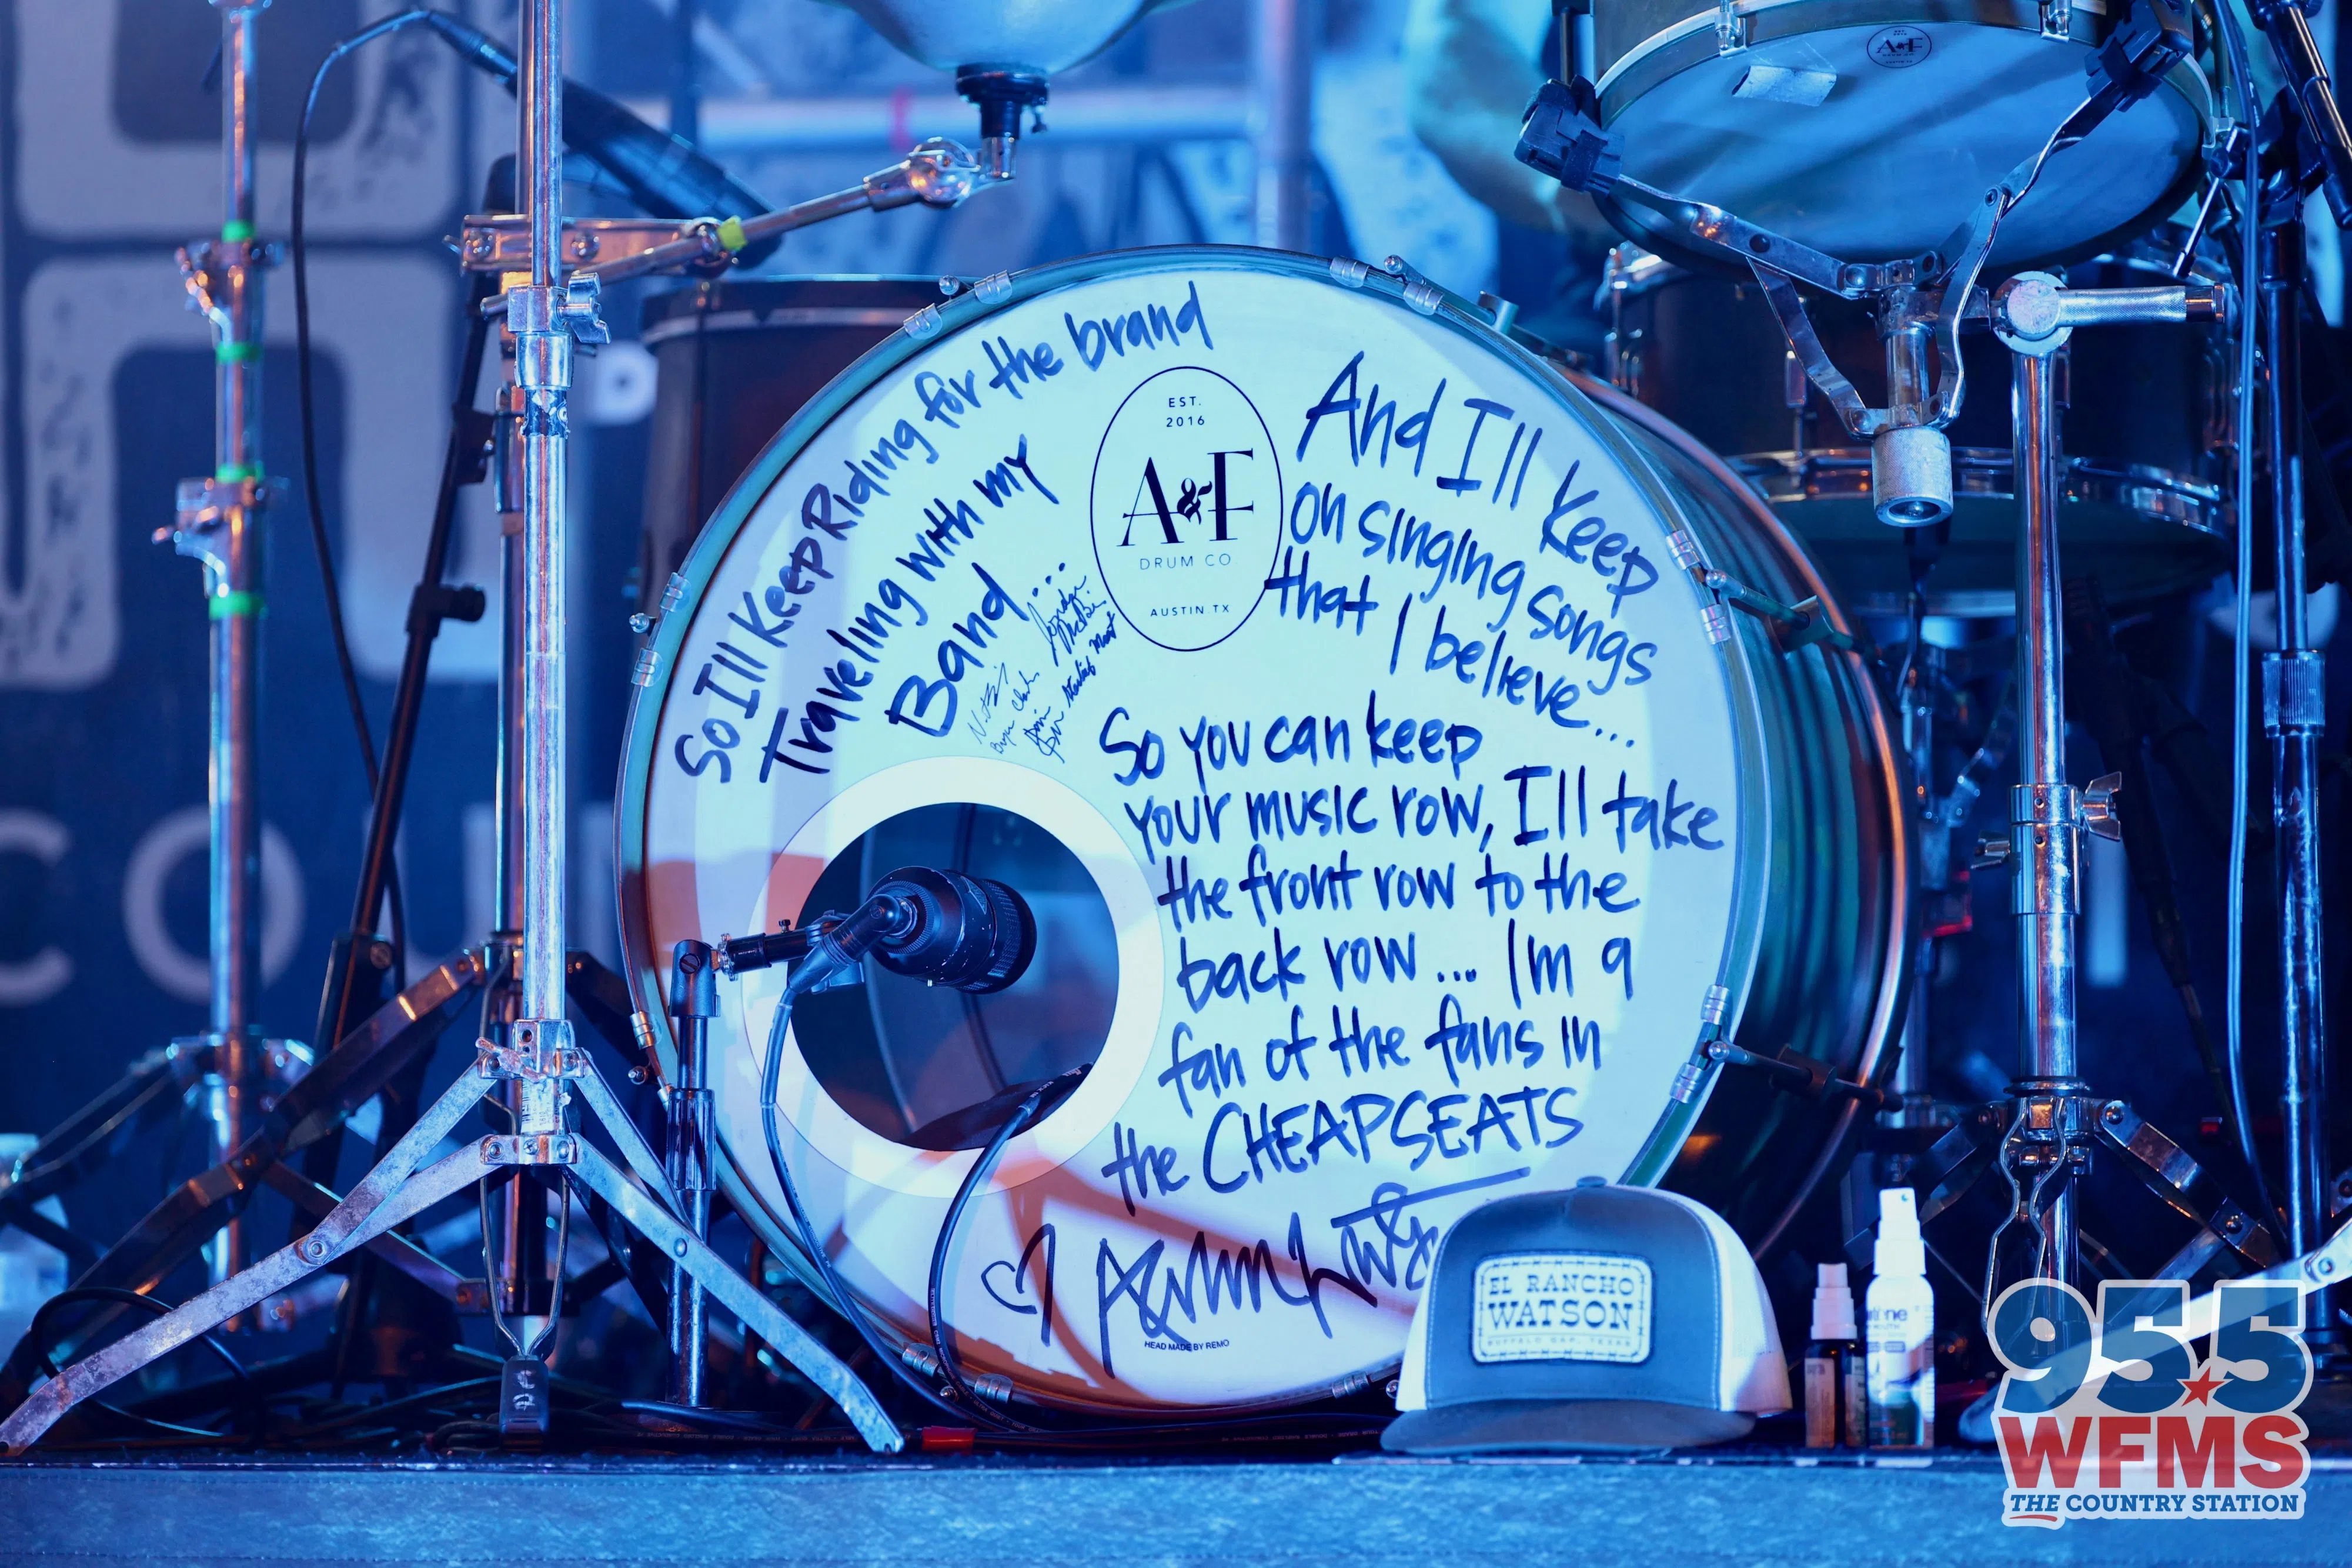 So Ill Keep Riding for the brand
Traveling with my
Band....
EST.
2016
A&F
DRUM CO
AUSTIN TX
And Ill Keep
on singing songs
that I believe...
So you can keep
your music row, Ill take
the front row to the
back row... Im a
fan of the fans in
the CHEAP SEATS
HEAD MADE BY REMO
EL RANCHO
WATSON
BUFFALO GAP, TEXAS
A&F
COU
95.5
WFMS
THE COUNTRY STATION